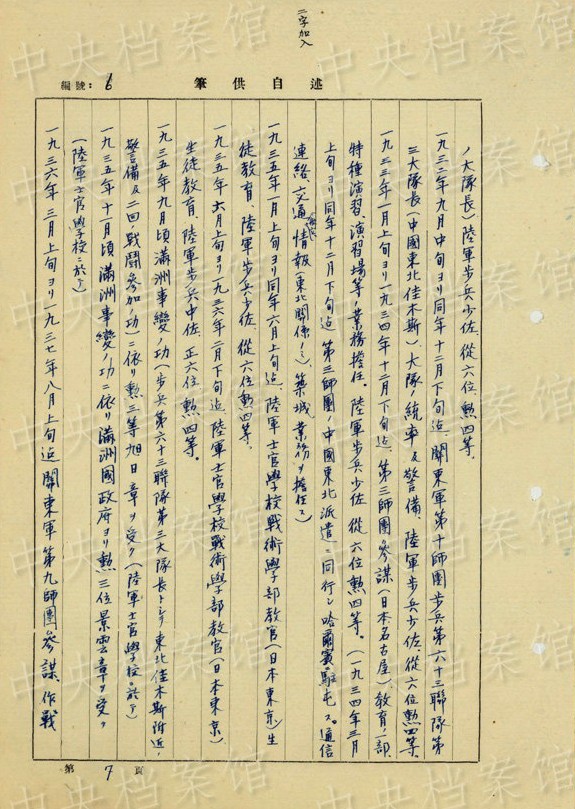 二字加入
編號：6
筆供自述
ノ大隊長）陸軍步兵少佐、從六位、勲四等。
一九三二年九月中旬ヨリ同年十二月下旬迠、關東軍第十師團步兵第六十三聯隊第
三大隊長（中國東北佳木斯）、大隊ノ統率及警備、陸軍步兵少佐、從六位、勲四等。
一九三三年一月上旬ヨリ一九三四年十二月下旬迠、第三師團參謀（日本名古屋）、教育ノ一部、
特種演習、演習場等ノ業務擔任。陸軍步兵少佐、從六位、勲四等。（一九三四年三月
上旬ヨリ同年十二月下旬迠、第三師團ノ中國東北派遣ニ同行シ哈爾賓ニ駐屯ス。通信
連絡、交通、情報（東北關係ノミ）、築城ノ業務ヲ擔任ス）
一九三五年一月上旬ヨリ同年六月上旬迠、陸軍士官學校戰術學部教官（日本東京）、生
徒教育、陸軍步兵少佐、從六位、勲四等。
一九三五年六月上旬ヨリ一九三六年二月下旬迠、陸軍士官學校戰術學部教官（日本東京）、
生徒教育、陸軍步兵中佐、正六位、勲四等。
一九三五年九月頃滿洲事變ノ功（步兵第六十三聯隊第三大隊長トシテ東北佳木斯附近ノ
警備及二回ノ戰鬪參加ノ功）ニ依リ勲三等旭日章ヲ受ク（陸軍士官學校ニ於テ）
一九三五年十一月頃滿洲事變ノ功ニ依リ滿洲國政府ヨリ勲三位景雲章ヲ受ク
（陸軍士官學校ニ於テ）
一九三六年三月上旬ヨリ一九三七年八月上旬迠、關東軍第九師團參謀、作戰
第7頁
中央档案馆